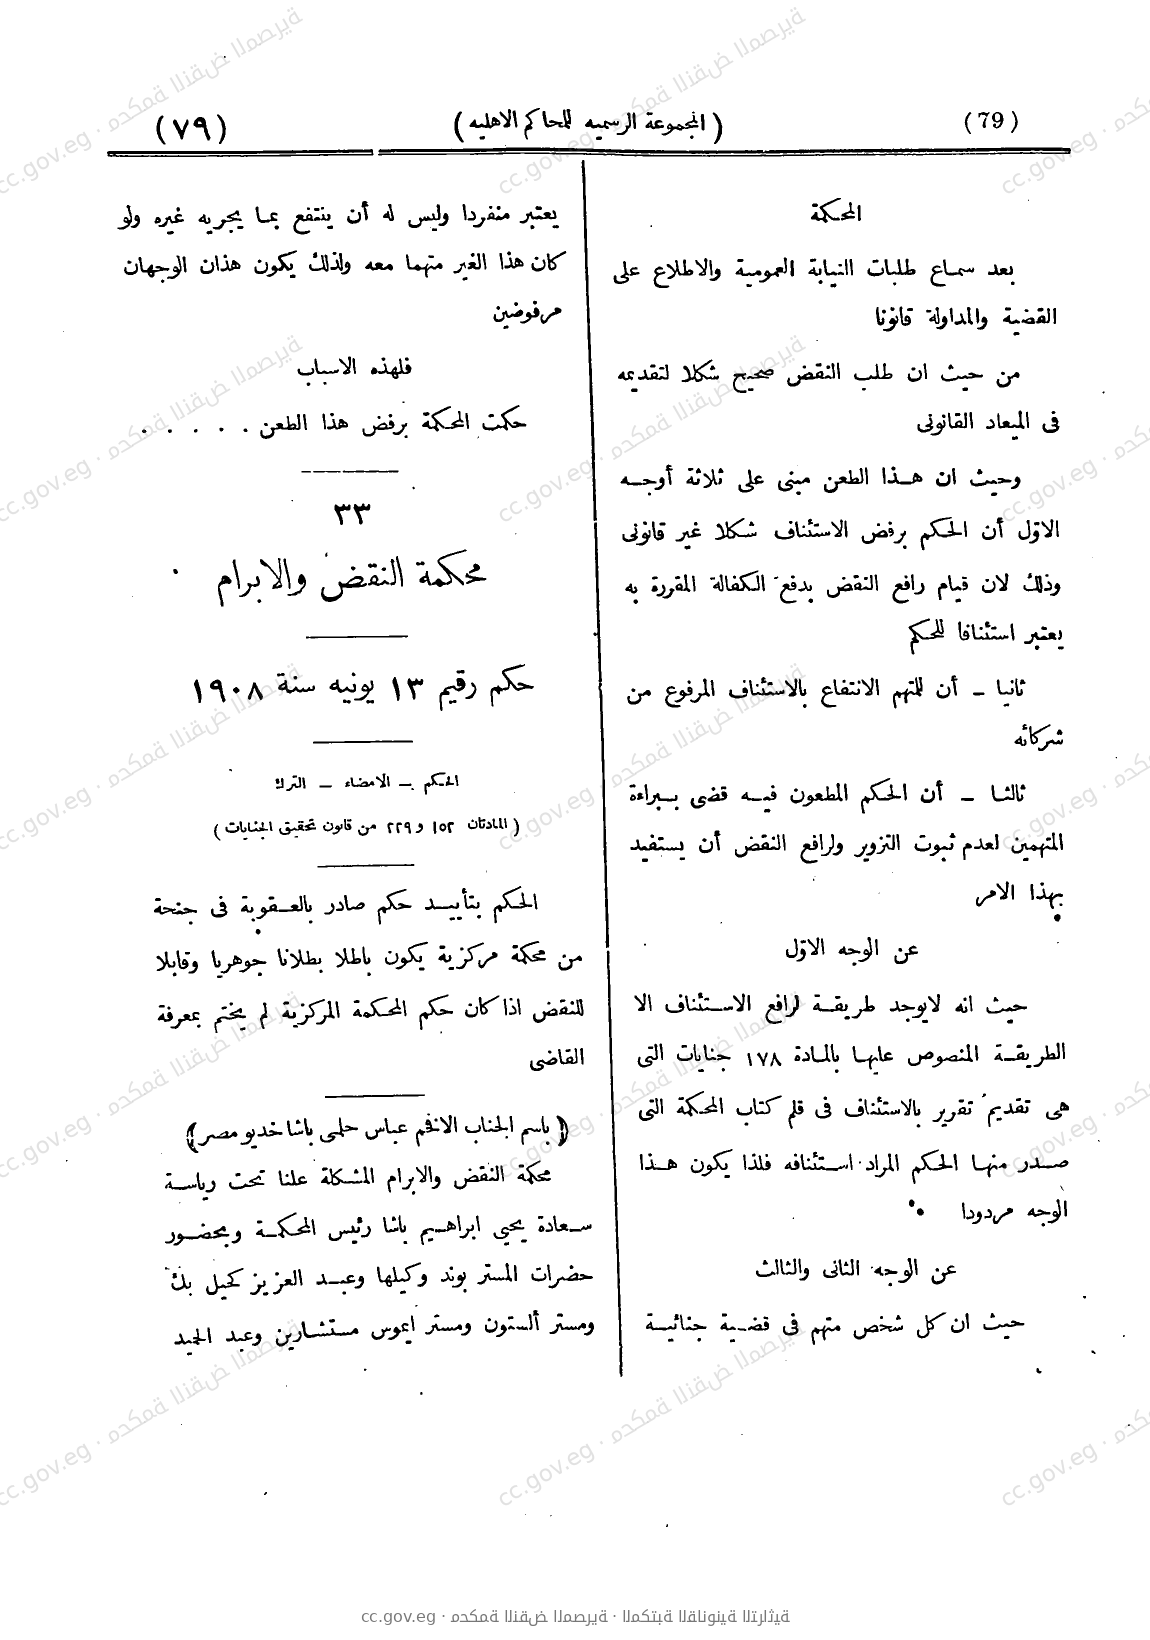 (79)
(المجموعة الرسميه للمحاكم الاهليه)
(٧٩)
المحكمة
بعد سماع طلبات النيابة العمومية والاطلاع على
القضية والمداولة قانونا
من حيث ان طلب النقض صحيح شكلا لتقديمه
فى الميعاد القانونى
وحيث ان هذا الطعن مبنى على ثلاثة أوجه
الاوّل أن الحكم برفض الاستئناف شكلا غير قانونى
وذلك لان قيام رافع النقض بدفع الكفالة المقررة به
يعتبر استئنافا للحكم
ثانيا – أن للمتهم الانتفاع بالاستئناف المرفوع من
شركائه
ثالثا – أن الحكم المطعون فيه قضى ببراءة
المتهمين لعدم ثبوت التزوير ولرافع النقض أن يستفيد
بهذا الامر
عن الوجه الاوّل
حيث انه لايوجد طريقة لرافع الاستئناف الا
الطريقة المنصوص عليها بالمادة ١٧٨ جنايات التى
هى تقديم تقرير بالاستئناف فى قلم كتاب المحكمة التى
صدر منها الحكم المراد استئنافه فلذا يكون هذا
الوجه مردودا
عن الوجه الثانى والثالث
حيث ان كل شخص متهم فى قضية جنائية
يعتبر منفردا وليس له أن ينتفع بما يجريه غيره ولو
كان هذا الغير متهما معه ولذلك يكون هذان الوجهان
مرفوضين
فلهذه الاسباب
حكمت المحكمة برفض هذا الطعن . . . . .
٣٣
محكمة النقض والابرام
حكم رقيم ١٣ يونيه سنة ١٩٠٨
الحكم – الامضاء – الترك
(المادتان ١٥٢ و ٢٢٩ من قانون تحقيق الجنايات)
الحكم بتأييد حكم صادر بالعقوبة فى جنحة
من محكمة مركزية يكون باطلا بطلانا جوهريا وقابلا
للنقض اذا كان حكم المحكمة المركزية لم يختم بمعرفة
القاضى
(باسم الجناب الافخم عباس حلمى باشا خديو مصر)
محكمة النقض والابرام المشكلة علنا تحت رياسة
سعادة يحيى ابراهيم باشا رئيس المحكمة وبحضور
حضرات المستر بوند وكيلها وعبد العزيز كحيل بك
ومستر ألستون ومستر ايموس مستشارين وعبد المجيد
cc.gov.eg · محكمة النقض المصرية · المكتبة القانونية التراثية